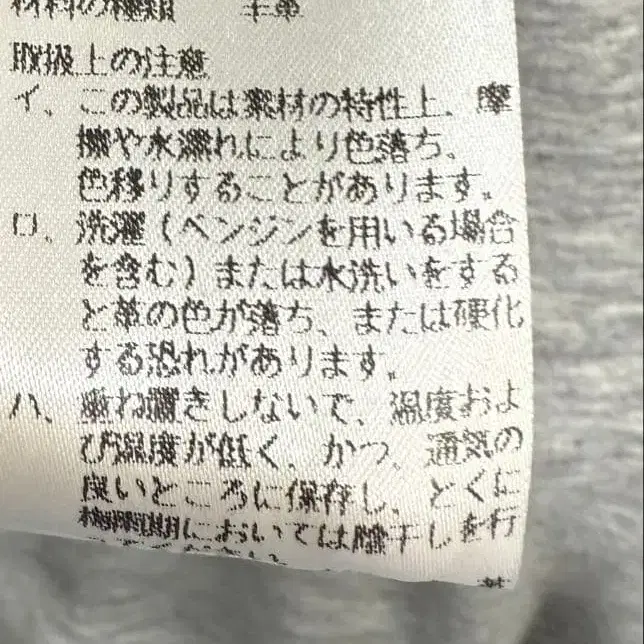 材料の種類　羊革
取扱上の注意
イ、この製品は素材の特性上、摩
擦や水濡れにより色落ち、
色移りすることがあります。
ロ、洗濯（ベンジンを用いる場合
を含む）または水洗いをする
と革の色が落ち、または硬化
する恐れがあります。
ハ、重ね置きしないで、温度およ
び湿度が低く、かつ、通気の
良いところに保存し、とくに
梅雨期においては陰干しを行